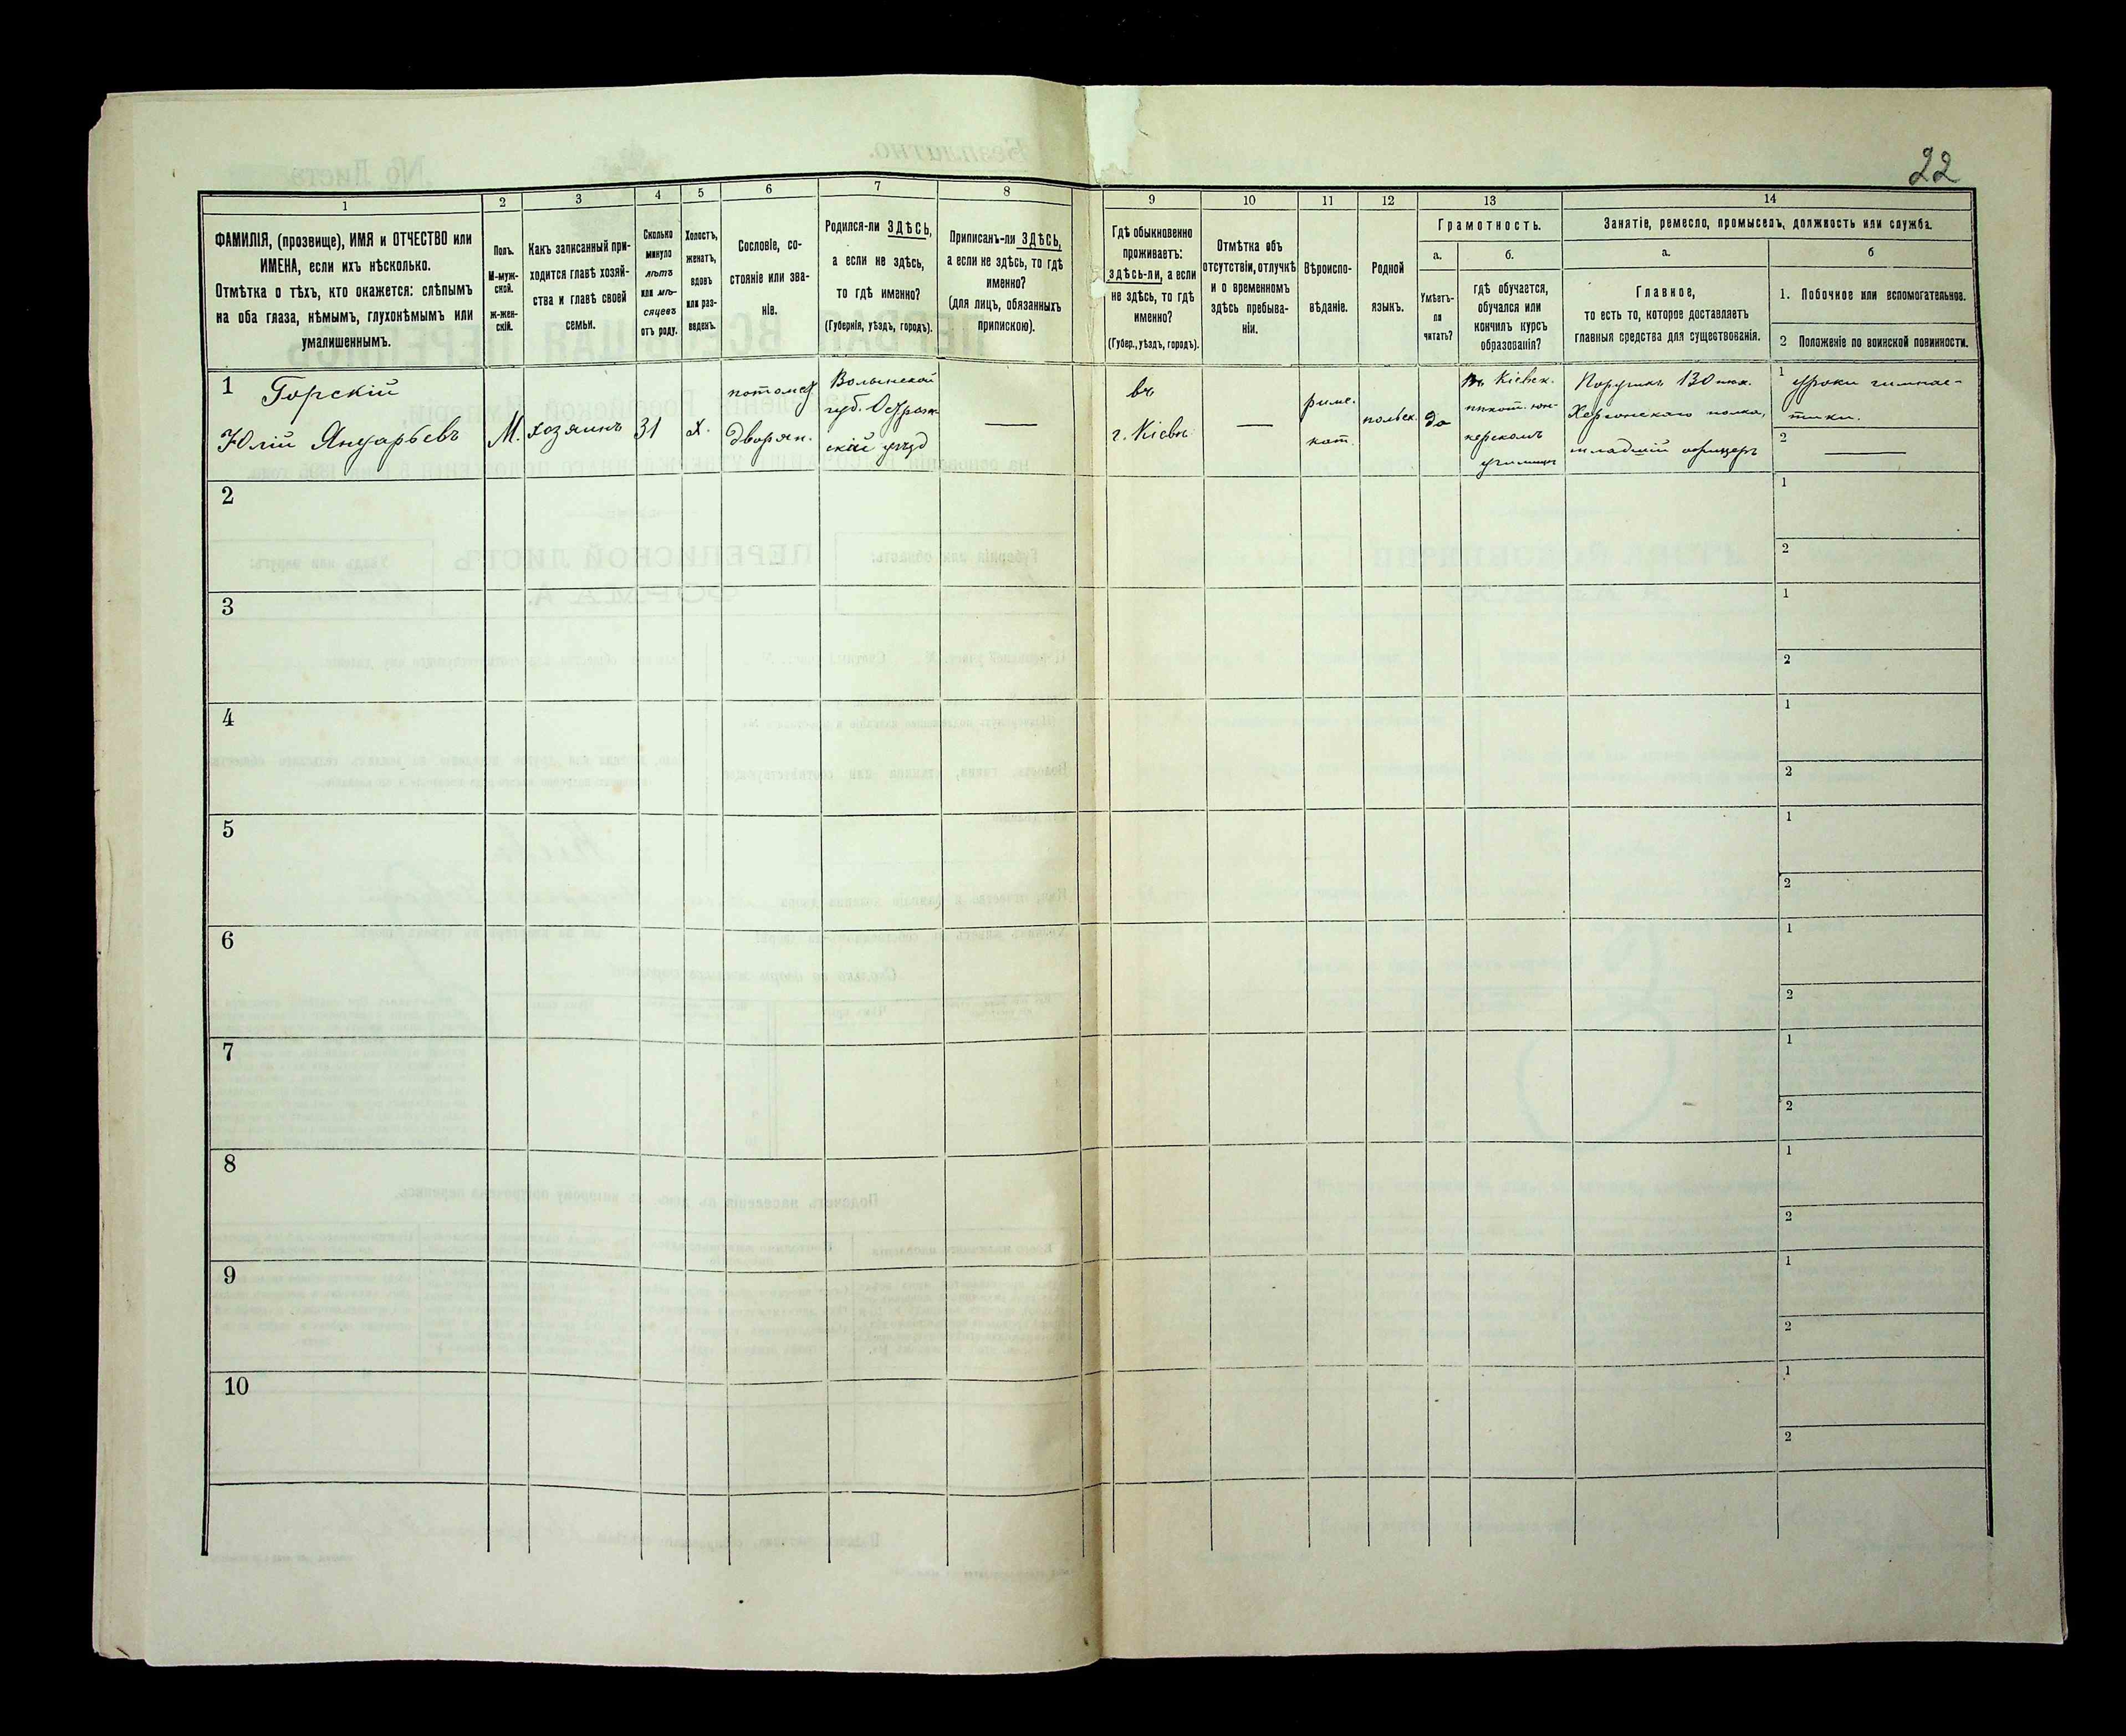 22
1
2
3
4
5
6
7
8
9
10
11
12
13
14
ФАМИЛІЯ, (прозвище), ИМЯ и ОТЧЕСТВО или
ИМЕНА, если ихъ нѣсколько.
Отмѣтка о тѣхъ, кто окажется: слѣпымъ
на оба глаза, нѣмымъ, глухонѣмымъ или
умалишеннымъ.
Полъ.
М-муж-
ской.
ж-жен-
скій.
Какъ записанный при-
ходится главѣ хозяй-
ства и главѣ своей
семьи.
Сколько
минуло
лѣтъ
или мѣ-
сяцевъ
отъ роду.
Холостъ,
женатъ,
вдовъ
или раз-
веденъ.
Сословіе, со-
стояніе или зва-
ніе.
Родился-ли ЗДѢСЬ,
а если не здѣсь,
то гдѣ именно?
(Губернія, уѣздъ, городъ).
Приписанъ-ли ЗДѢСЬ,
а если не здѣсь, то гдѣ
именно?
(для лицъ, обязанныхъ
припискою).
Гдѣ обыкновенно
проживаетъ:
здѣсь-ли, а если
не здѣсь, то гдѣ
именно?
(Губер., уѣздъ, городъ).
Отмѣтка объ
отсутствіи, отлучкѣ
и о временномъ
здѣсь пребыва-
ніи.
Вѣроиспо-
вѣданіе.
Родной
языкъ.
Грамотность.
а.
Умѣетъ-
ли
читать?
б.
гдѣ обучается,
обучался или
кончилъ курсъ
образованія?
Занятіе, ремесло, промыселъ, должность или служба.
а.
Главное,
то есть то, которое доставляетъ
главныя средства для существованія.
б
1. Побочное или вспомогательное.
2 Положеніе по воинской повинности.
1
Горскій
Юлій Януарьевъ
М.
хозяинъ
31
х.
потомст
дворян.
Волынской
губ. Острож
скій уѣзд
въ
г. Кіевѣ
римс.
кат.
польск.
да
въ Кіевск.
пѣхот. юн-
керскомъ
училищѣ
Поручикъ 130 пѣх.
Херсонскаго полка,
младшій офицеръ
1
уроки гимнас-
тики.
2
2
1
2
3
1
2
4
1
2
5
1
2
6
1
2
7
1
2
8
1
2
9
1
2
10
1
2